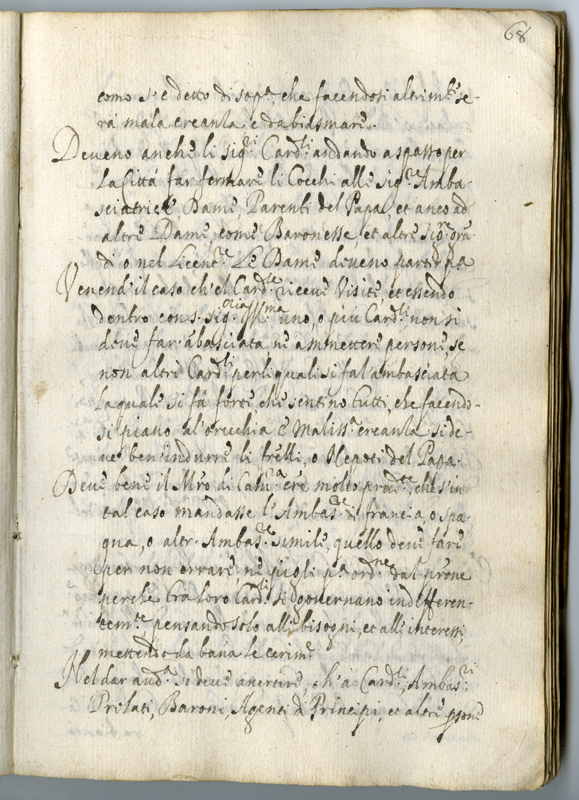 68
como s'è detto di sop.ª, che facendosi altrim.te se-
rà mala creanza e da biasmare.
Deveno anche li Sig.ri Card.li andando a spasso per
la Città far fermare li Cocchi alle Sig.re Amba-
sciatrice Dame Parenti del Papa, et anco ad
altre Dame come Baronesse, et altre Sig.re gra-
di o nel Licent.re Le Dame deveno partir p.ª
Venend' il caso ch'el Card.le riceve visite et essendo
dentro con S. Sig.ria Ill.ma uno, o più Card.li non si
deve far' abasciata ne ammettere persone, se
non altri Card.li per li quali si fa l'ambasciata
la quale si fà forte che sentino tutti, che facendo-
si piano al'orecchia è maliss.ª creanza si de-
ve ben' indurre li frelli, o Nepoti del Papa.
Deve bene il Mro di Cam.ª ere molto prud.te, che s'in
tal caso mandasse l'Ambas.re di francia, o spa-
gna, o altr' Ambas.re simile, quello deve fare
per non errare ne pigli p.ª ord.ne dal prone
perche tra loro Card.li si governano indifferen-
tem.te pensando solo alli bisogni, et alli interessi
mettendo da bana le cerim.e
Nel dar aud.ª si deve avertire, ch'a Card.li, Ambas.ri
Prelati, Baroni, Agenti di Principi, et altre psone